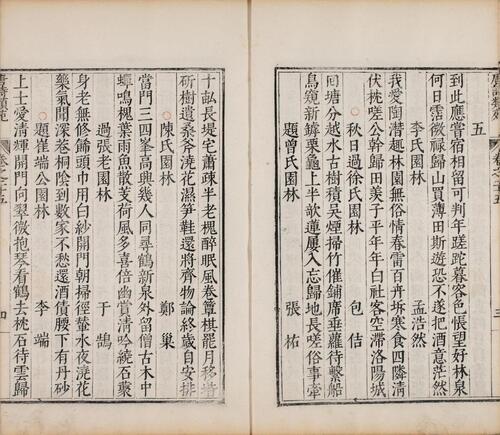 五
到此應嘗宿相留可判年蹉跎暮客色悵望好林泉
何日霑微祿歸山買薄田斯遊恐不遂把酒意茫然
李氏園林 孟浩然
我愛陶潛趣林園無俗情春雷百卉坼寒食四隣清
伏枕嗟公幹歸田羨子平年年白社客空滯洛陽城
秋日過徐氏園林 包佶
囘塘分越水古樹積吳煙掃竹催鋪席垂蘿待繫船
鳥窺新罅栗龜上半欹蓮屢入忘歸地長嗟俗事牽
題曾氏園林 張祐
十畝長堤宅蕭疎半老槐醉眠風卷簟棋罷月移堦
斫樹遺桑斧澆花濕笋鞋還將齊物論終歲自安排
陳氏園林 鄭巢
當門三四峯高興幾人同尋鶴新泉外留僧古木中
蟬鳴槐葉雨魚散芰荷風多喜陪幽賞清吟繞石叢
過張老園林 于鵠
身老無修飾頭巾用白紗開門朝掃徑輂水夜澆花
藥氣聞深巷桐陰到數家不愁還酒債腰下有丹砂
題崔端公園林 李端
上士愛清輝開門向翠微抱琴看鶴去枕石待雲歸